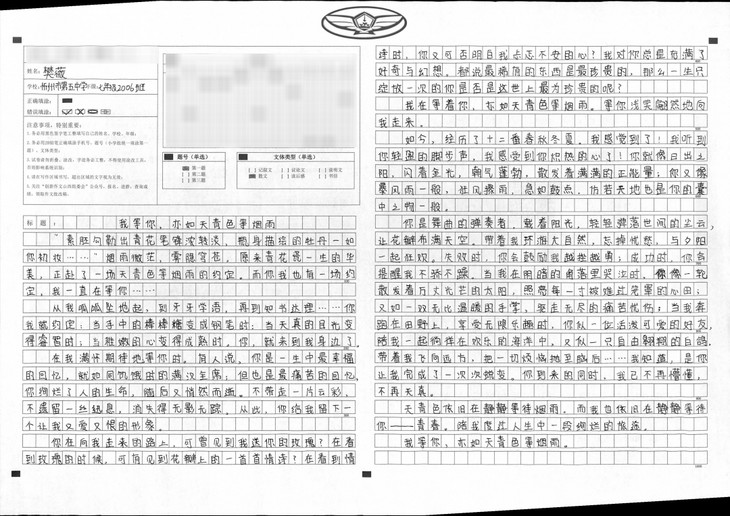 姓名：樊薇
学校：忻州市第五中学 年级：七年级2006班
正确填涂：
错误填涂：
注意事项，特别重要：
题号（单选）
文体类型（单选）
第一题
第二题
第三题
记叙文
议论文
说明文
散文
读后感
书信
标题：我等你，亦如天青色等烟雨
“素胚勾勒出青花笔锋浓转淡，瓶身描绘的牡丹一如
你初妆……”烟雨微茫，雾隐穹苍。原来青花瓷一生的华
美，正赴了一场天青色等烟雨的约定。而你我也有一场约
定。我一直在等你……
从我呱呱坠地起，到牙牙学语，再到如书达理……你
我就约定：当手中的棒棒糖变成钢笔时；当天真的目光变
得睿智时；当稚嫩的心变得成熟时，你就来到我身边了。
在我满怀期待地等你时。有人说，你是一生中最幸福
的回忆，就如同饥饿时的满汉全席；但也是最痛苦的回忆，
你绚烂了人的生命，随后又悄然而逝。不带走一片云彩，
不遗留一丝纸息，消失得无影无踪。从此，你给我留下一
个让我又爱又恨的形象。
你在向我走来的路上，可曾见到我送你的玫瑰？在看
到玫瑰的时候，可有见到花瓣上的一首首情诗？在看到情
诗时，你又可否明白我忐忑不安的心？我对你总是充满了
好奇与幻想。都说最稀有的东西是最珍贵的，那么一生只
绽放一次的你是否是这世上最为珍贵的呢？
我在等着你，亦如天青色等烟雨。等你浅笑翩然地向
我走来。
如今，经历了十二番春秋冬夏，我感觉到了！我听到
你轻盈的脚步声，我感觉到你炽热的心了！你就像日出之
阳，闪着金光，朝气蓬勃，散发着满满的正能量；你又像
暴风雨一般，狂风骤雨，急如鼓点，仿若天地也是你的囊
中之物一般。
你是舞曲的弹奏者，载着阳光，轻轻弹落世间的尘云，
让花瓣布满天空。带着我环游大自然，忘掉忧愁，与夕阳
一起狂欢。失败时，你会鼓励我越挫越勇；成功时，你会
提醒我不骄不躁。当我在阴暗的角落里哭泣时，你像一轮
散发着万丈光芒的太阳，照亮每一寸被难过笼罩的心田；
又如一双无比温暖的手掌，驱走无尽的痛苦忧伤；当我奔
跑在田野上，享受无限乐趣时，你似一位活泼可爱的好友，
陪我一起徜徉在欢乐的海洋中，又似一只自由翱翔的白鸽，
带着我飞向远方，把一切烦恼抛至脑后……我知道，是你
让我完成了一次次蜕变。你到来的同时，我已不再懵懂，
不再天真。
天青色依旧在静静等待烟雨，而我也依旧在静静等待
你——青春。陪我度过人生中一段绚烂的旅途。
我等你，亦如天青色等烟雨。